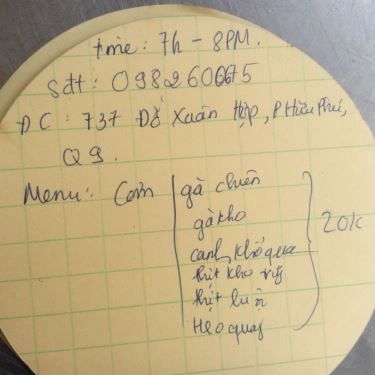 time: 7h - 8PM.
Sđt: 0982606675
ĐC: 737 Đỗ Xuân Hợp, P Hữu Phú,
Q9.
Menu: Cơm gà chiên
gà kho
canh khổ qua
thịt kho trứ
thịt luộ
Heo quay
20k